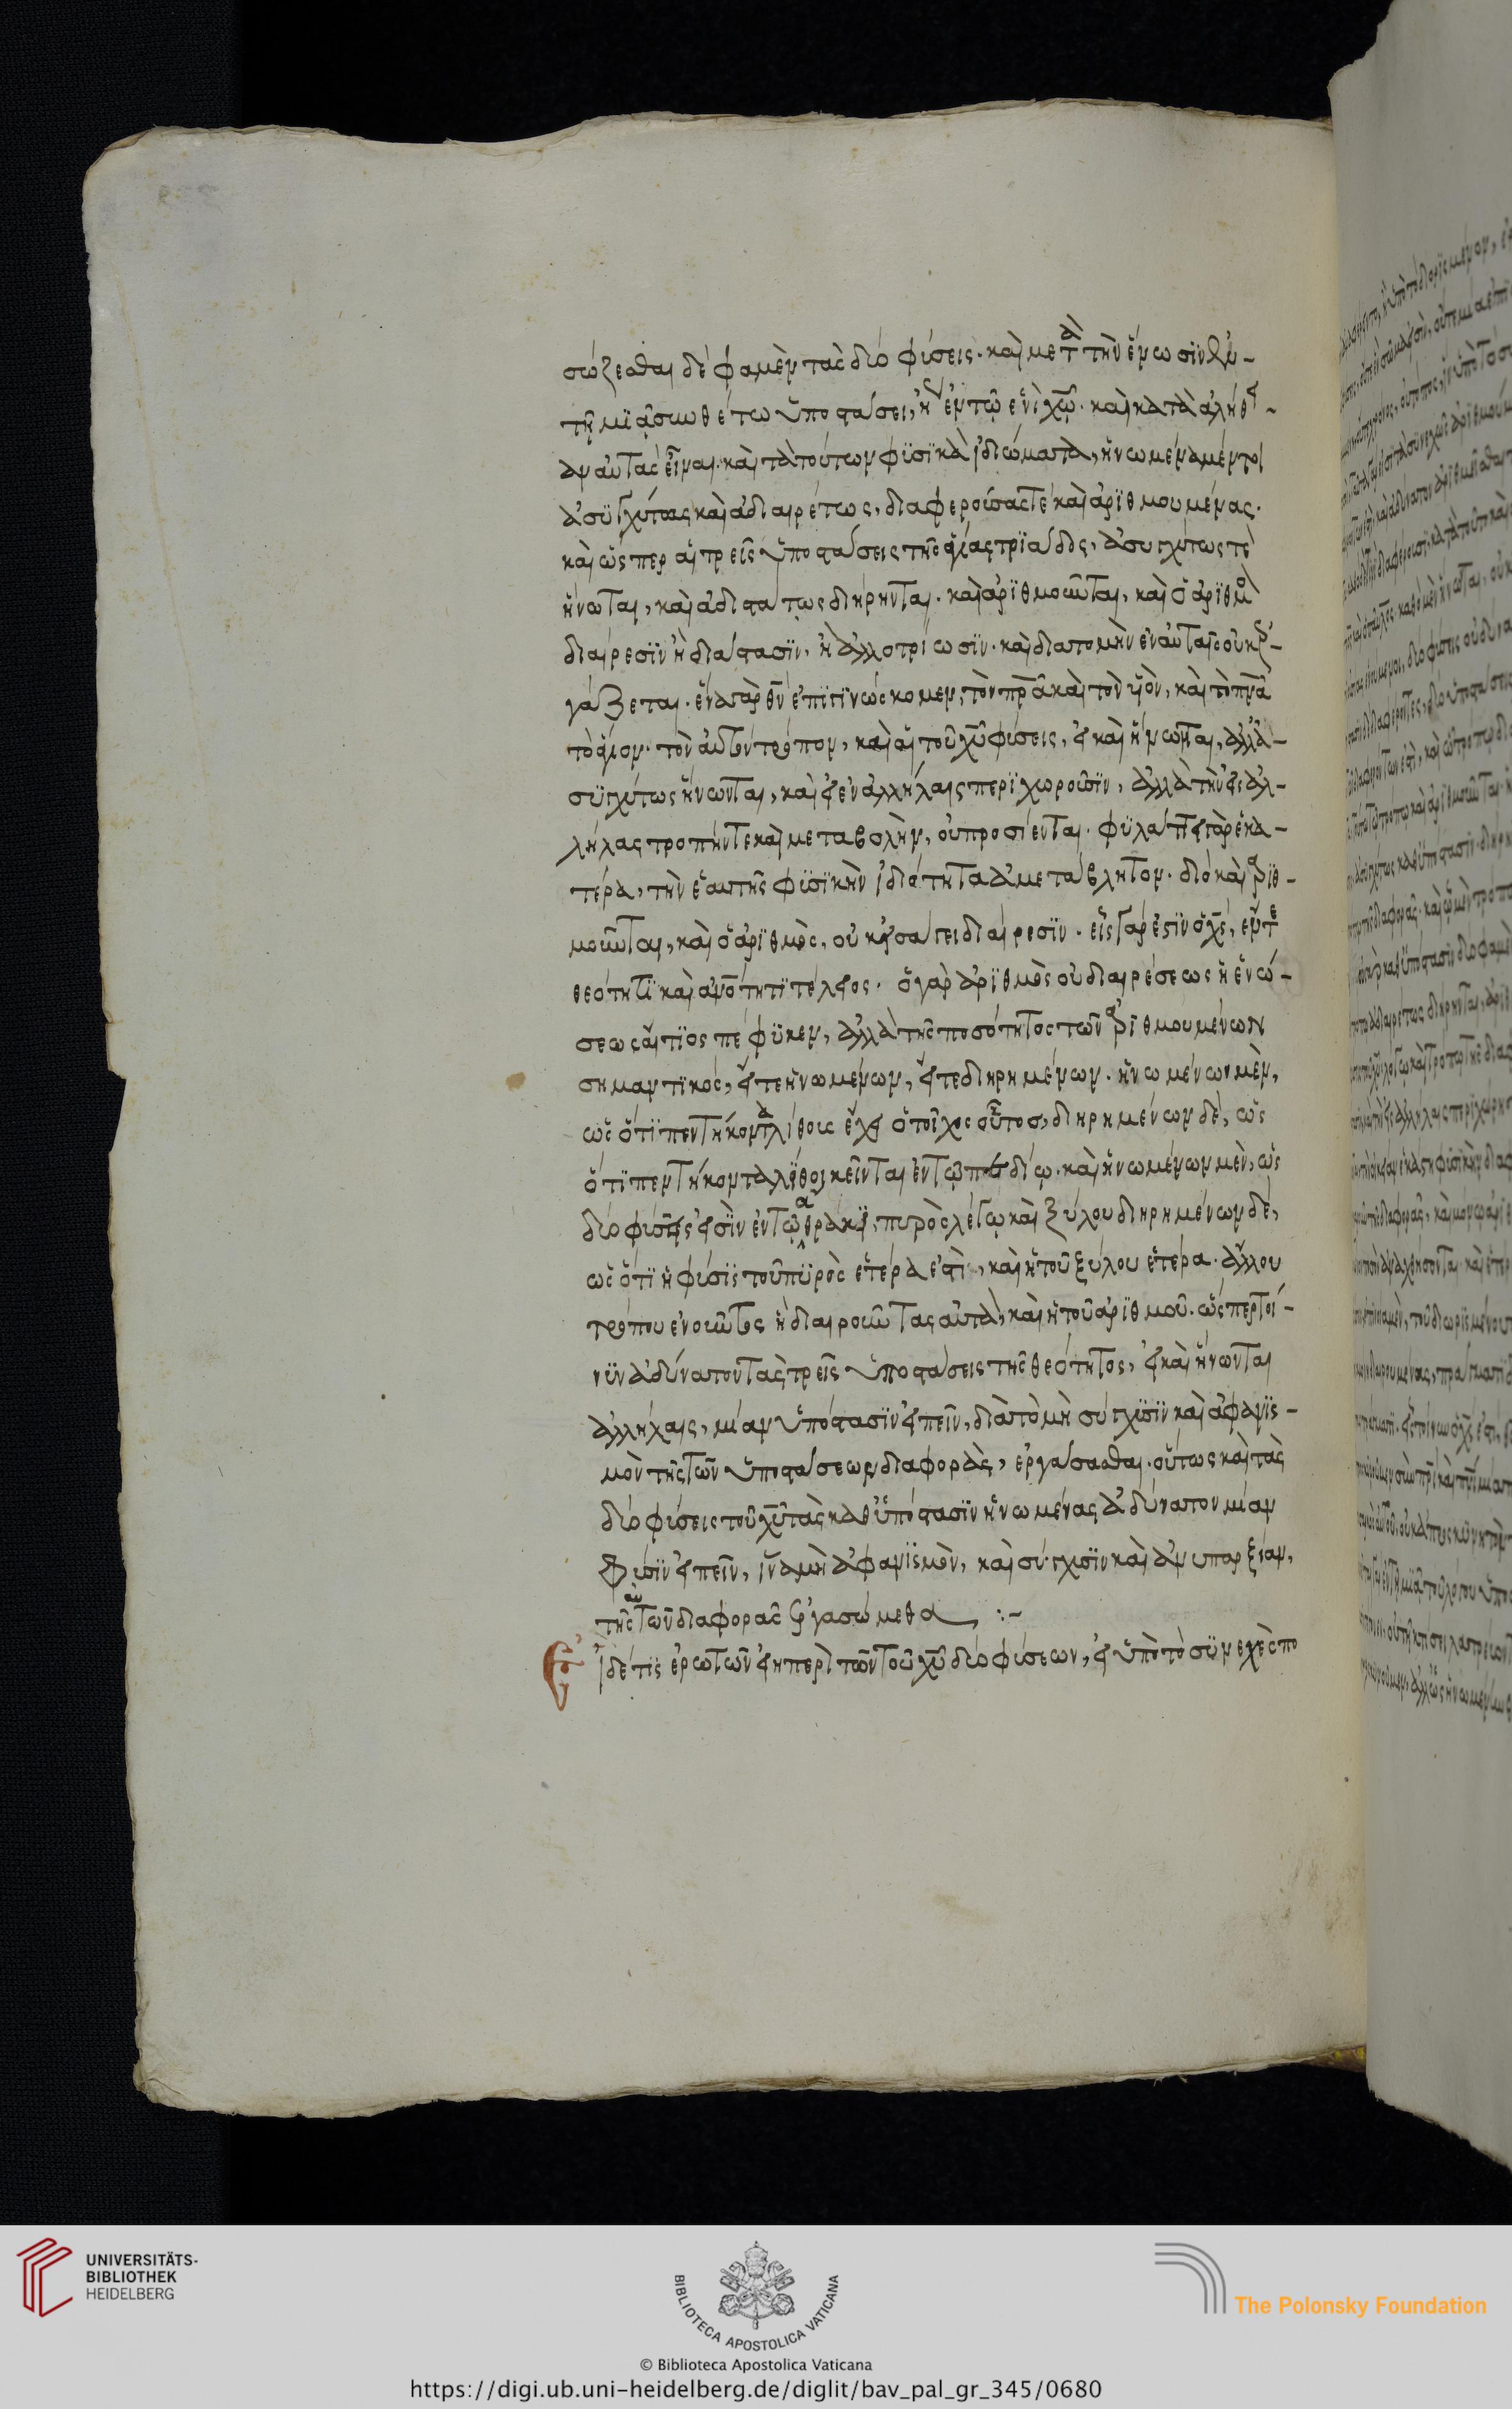 σώζεσθαι δέ φαμὲν τὰς δύο φύσεις· καὶ μετὰ τὴν ἕνωσϊν ἐν
τῇ μϊᾷ συνθέτω ὑποστάσει, ἤγουν ἐν τῷ ἑνὶ χῷ. καὶ κατὰ ἀλήθει-
αν αὐτὰς εἶναι. καὶ τὰ τούτων φϋσϊκὰ ἰδιώματα, ἡνωμένα μέντοι
ἀσϋγχύτως καὶ ἀδιαιρέτως, διαφερούσας τὲ καὶ ἀρϊθμουμένας.
καὶ ὥσπερ αἱ τρεῖς ὑποστάσεις τῆς ἁγίας τρϊάδος, ἀσυγχύτως τὲ
ἥνωται, καὶ ἀδιαστάτως διήρηνται. καὶ ἀρϊθμοῦνται, καὶ ὁ ἀρϊθμὸς
διαίρεσϊν ἢ διάστασϊν, ἢ ἀλλοτρίωσϊν. καὶ διατομὴν ἐν αὐταῖς οὐκ ἐρ-
γάζεται. ἕνα γὰρ θν ἐπϊγϊνώσκομεν, τὸν πρα καὶ τὸν υἱὸν, καὶ τὸ πνα
τὸ ἅγιον· τὸν αὐτὸν τρόπον, καὶ αἱ τοῦ χυ φύσεις, εἰ καὶ ἥνωνται, ἀλλ' ἀ-
σϋγχύτως ἥνωνται, καὶ εἰ ἐν ἀλλήλαις περϊχωροῦσϊν, ἀλλὰ τὴν εἰς ἀλ-
λήλας τροπήν τε καὶ μεταβολὴν, οὐ προσίενται. φϋλάττει γὰρ ἑκα-
τέρα, τὴν ἑαυτῆς φϋσϊκὴν ἰδιότητα ἀμετάβλητον. διὸ καὶ ἀρϊθ-
μοῦνται, καὶ ὁ ἀρϊθμὸς, οὐκ εἰσάγει διαίρεσϊν. εἷς γάρ ἐστϊν ὁ χς, ἐν τε
θεότητϊ καὶ ἀνότητϊ τέλειος. ὁ γὰρ ἀρϊθμὸς οὐ διαιρέσεως ἢ ἑνώ-
σεως αἴτϊος πέφϋκεν, ἀλλὰ τῆς ποσότητος τῶν ἀρϊθμουμένων
σημαντϊκός, εἴτε ἡνωμένων, εἴτε διηρημένων. ἡνωμένων μὲν,
ὡς ὅτϊ πεντήκοντα λίθους ἔχει ὁ τοῖχος οὗτος, διηρημένων δὲ, ὡς
ὅτϊ πεντήκοντα λίθοι κεῖνται ἐν τῷ πεδίῳ. καὶ ἡνωμένων μὲν, ὡς
δύο φύσεις εἰσϊν ἐν τῷ ἄνθρακϊ, πυρὸς λέγω καὶ ξύλου διηρημένων δὲ,
ὡς ὅτϊ ἡ φύσϊς τοῦ πϋρὸς ἑτέρα ἐστὶ, καὶ ἡ τοῦ ξύλου ἑτέρα. ἄλλου
τρόπου ἑνοῦντος ἢ διαιροῦντος αὐτὰ, καὶ ἢ τοῦ ἀρϊθμοῦ. ὥσπερ τοί-
νϋν ἀδύνατον τὰς τρεῖς ὑποστάσεις τῆς θεότητος, εἰ καὶ ἥνωνται
ἀλλήλαις, μίαν ὑπόστασϊν εἰπεῖν, διὰ τὸ μὴ σύγχϋσϊν καὶ ἀφανϊσ-
μὸν τῆς τῶν ὑποστάσεων διαφορὰς, ἐργάσασθαι. οὕτως καὶ τὰς
δύο φύσεις τοῦ χυ τὰς καθ' ὑπόστασϊν ἡνωμένας ἀδύνατον μίαν
φύσϊν εἰπεῖν, ἵνα μὴ ἀφανϊσμὸν, καὶ σύγχυσϊν καὶ ἀνυπαρξίαν,
τῆς αὐτῶν διαφορᾶς ἐργασώμεθα :-
Εἰ δέ τϊς ἐρωτῶν εἴη περὶ τῶν τοῦ χυ δύο φύσεων, εἰ ὑπὸ τὸ σϋνεχὲς πο
UNIVERSITÄTS-
BIBLIOTHEK
HEIDELBERG
BIBLIOTECA APOSTOLICA VATICANA
The Polonsky Foundation
© Biblioteca Apostolica Vaticana
https://digi.ub.uni-heidelberg.de/diglit/bav_pal_gr_345/0680